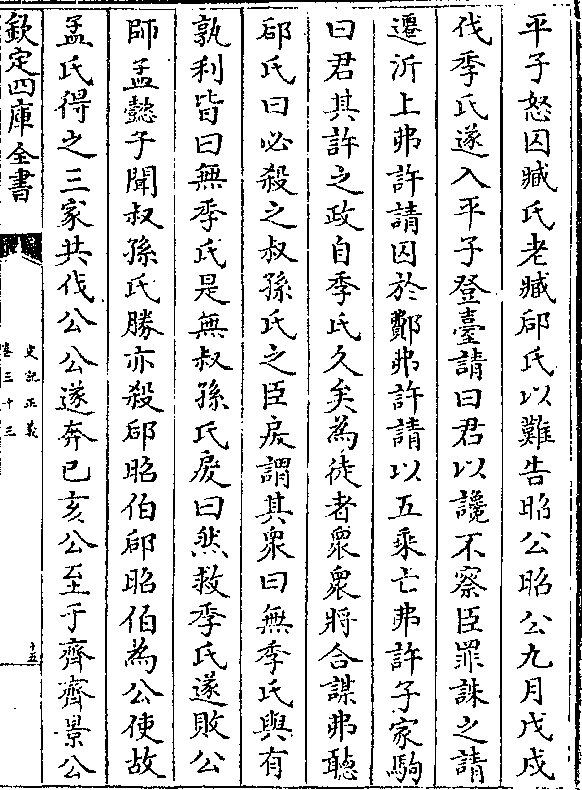 平子怒囚臧氏老臧郈氏以難告昭公昭公九月戊戌
伐季氏遂入平子登臺請曰君以讒不察臣罪誅之請
遷沂上弗許請囚於鄪弗許請以五乘亡弗許子家駒
曰君其許之政自季氏久矣為徒者衆衆將合謀弗聽
郈氏曰必殺之叔孫氏之臣戾謂其衆曰無季氏與有
孰利皆曰無季氏是無叔孫氏戾曰然救季氏遂敗公
師孟懿子聞叔孫氏勝亦殺郈昭伯郈昭伯為公使故
孟氏得之三家共伐公公遂奔已亥公至于齊齊景公
欽定四庫全書
史記正義
卷三十三
十五